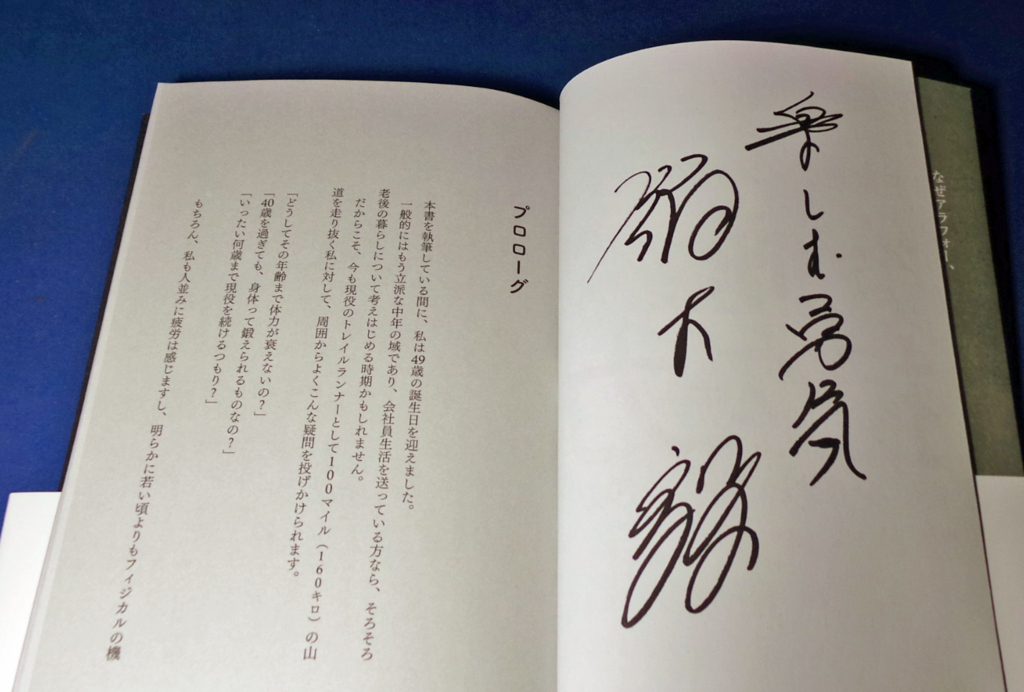 なぜアラフォー、
楽しむ勇気
鏑木毅
プロローグ
本書を執筆している間に、私は49歳の誕生日を迎えました。
一般的にはもう立派な中年の域であり、会社員生活を送っている方なら、そろそろ
老後の暮らしについて考えはじめる時期かもしれません。
だからこそ、今も現役のトレイルランナーとして100マイル（160キロ）の山
道を走り抜く私に対して、周囲からよくこんな疑問を投げかけられます。
「どうしてその年齢まで体力が衰えないの？」
「40歳を過ぎても、身体って鍛えられるものなの？」
「いったい何歳まで現役を続けるつもり？」
もちろん、私も人並みに疲労は感じますし、明らかに若い頃よりもフィジカルの機